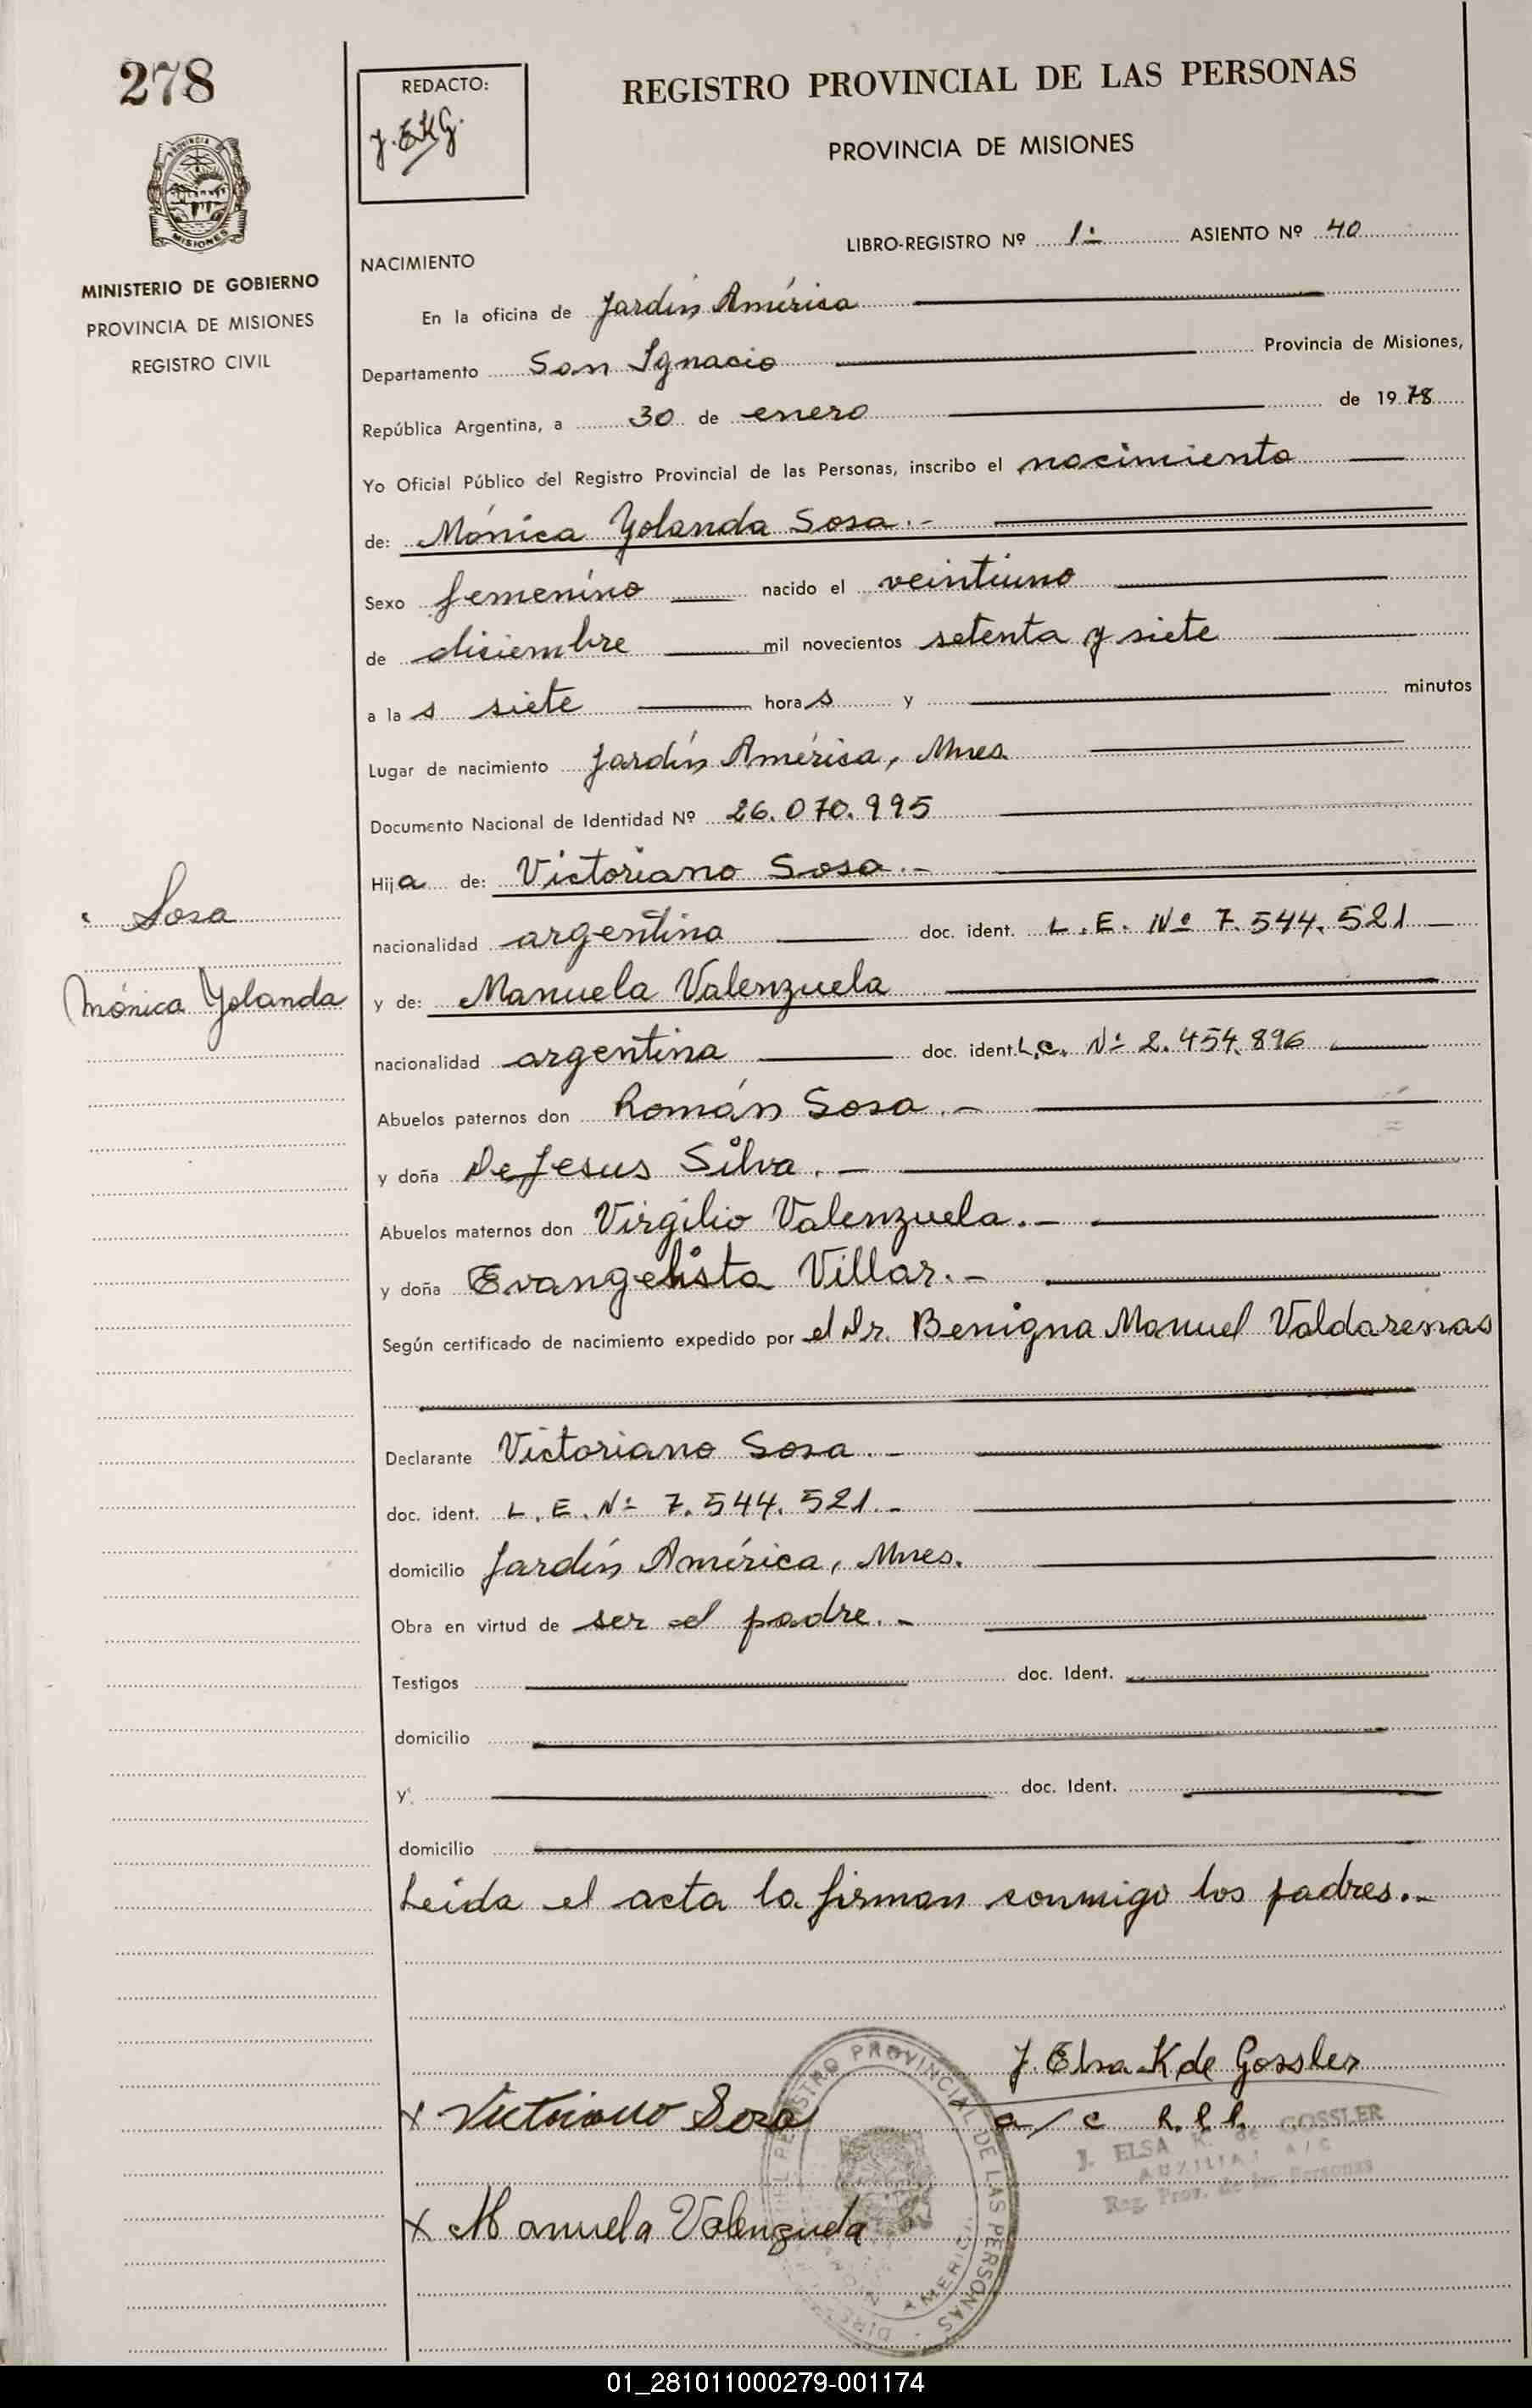 278
REDACTO:
J. EKG.
REGISTRO PROVINCIAL DE LAS PERSONAS
PROVINCIA DE MISIONES
MISIONES
MINISTERIO DE GOBIERNO
PROVINCIA DE MISIONES
REGISTRO CIVIL
LIBRO-REGISTRO Nº 1º ASIENTO Nº 40
NACIMIENTO
En la oficina de Jardín América
Departamento San Ignacio Provincia de Misiones,
República Argentina, a 30 de enero de 1978
Yo Oficial Público del Registro Provincial de las Personas, inscribo el nacimiento
de: Mónica Yolanda Sosa.-
Sexo femenino nacido el veintiuno
de diciembre mil novecientos setenta y siete
a las siete horas y minutos
Lugar de nacimiento Jardín América, Mnes.
Documento Nacional de Identidad Nº 26.070.995
Hija de: Victoriano Sosa.-
nacionalidad argentina doc. ident. L.E. Nº 7.544.521
y de: Manuela Valenzuela
nacionalidad argentina doc. ident. L.C. Nº 2.454.896
Sosa
Mónica Yolanda
Abuelos paternos don Román Sosa.-
y doña De Jesus Silva.-
Abuelos maternos don Virgilio Valenzuela.-
y doña Evangelista Villar.-
Según certificado de nacimiento expedido por el Dr. Benigna Manuel Valdarenas
Declarante Victoriano Sosa.-
doc. ident. L.E. Nº 7.544.521.-
domicilio Jardín América, Mnes.
Obra en virtud de ser el padre.-
Testigos doc. Ident.
domicilio
y doc. Ident.
domicilio
Leída el acta la firman conmigo los padres.-
J. Elsa K de Gossler
a/c R.P.P.
Victoriano Sosa
Manuela Valenzuela
J. ELSA K. de GOSSLER
AUXILIAR A/C
Reg. Prov. de las Personas
REGISTRO PROVINCIAL DE LAS PERSONAS
01_281011000279-001174